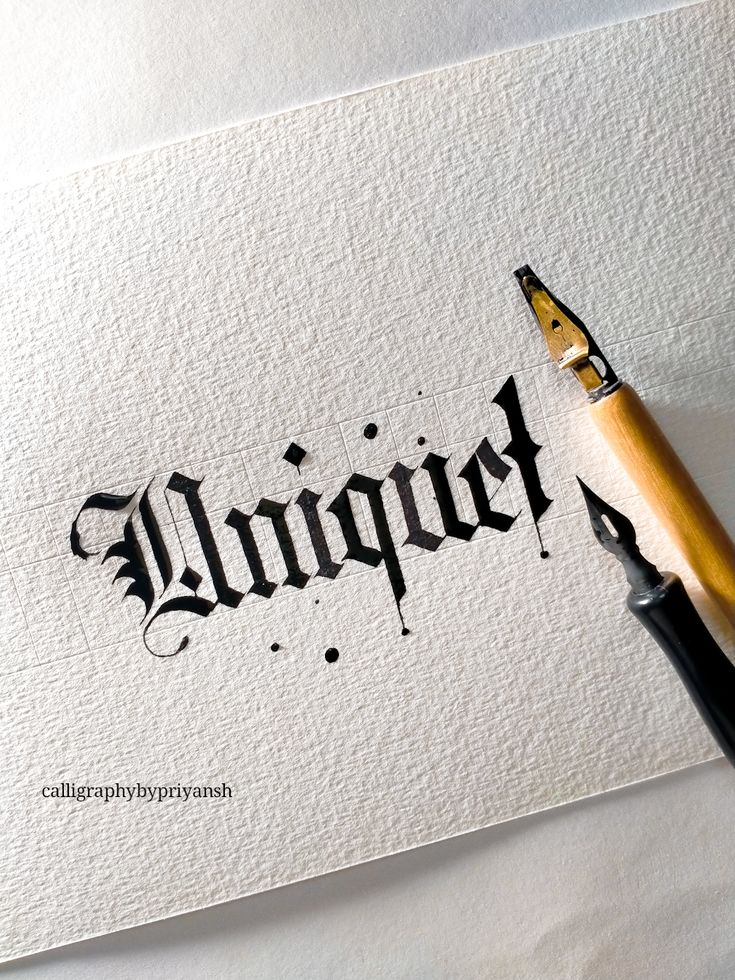 Uniquet
calligraphybypriyansh